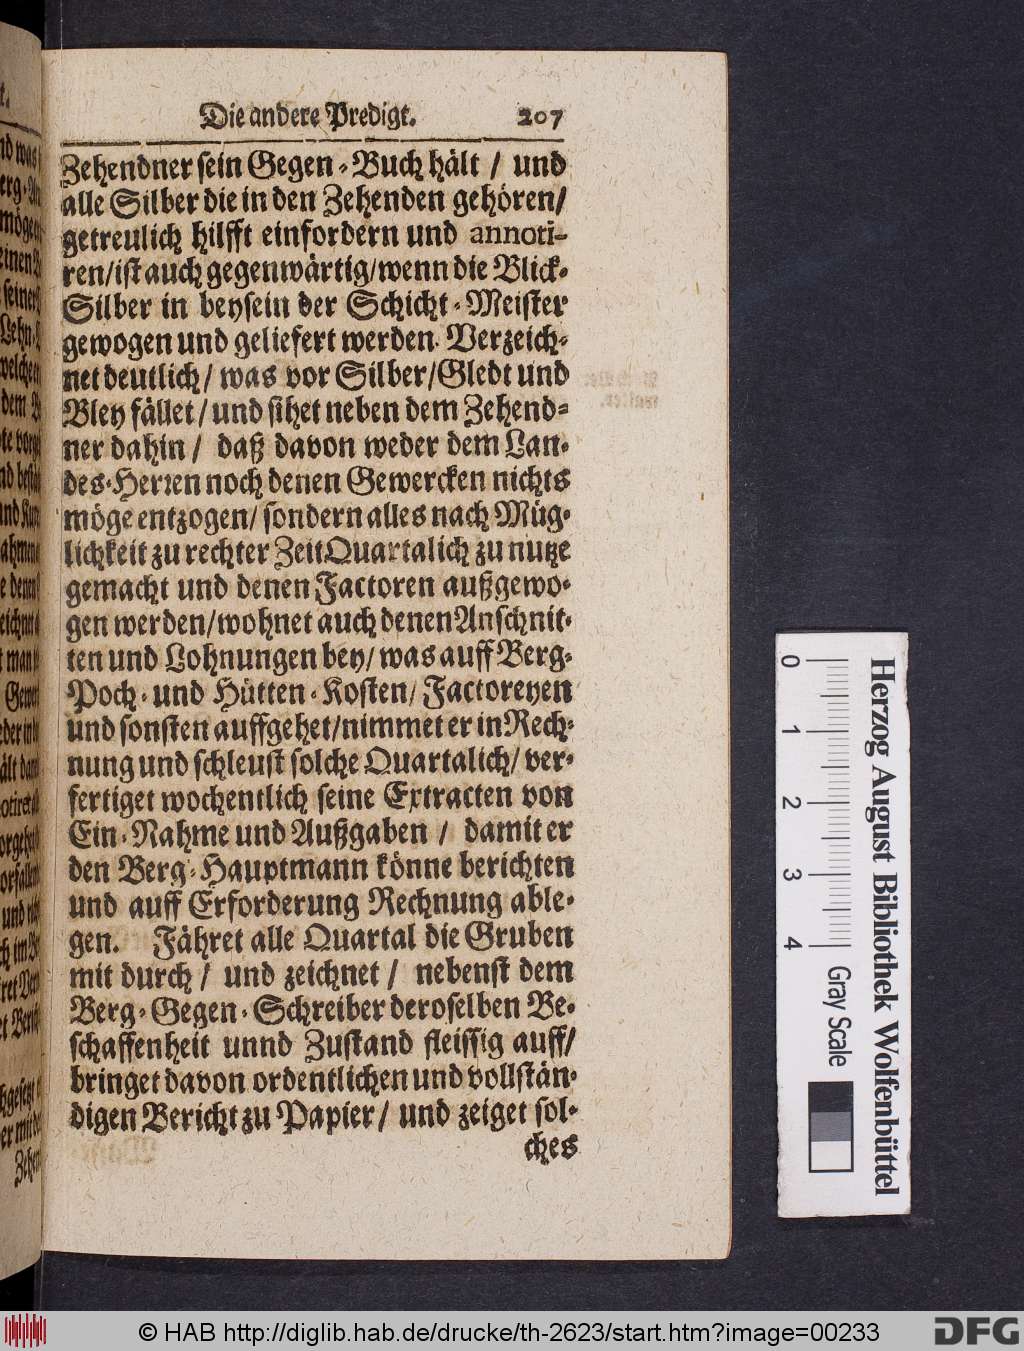 Die andere Predigt. 207
Zehendner sein Gegen-Buch hält / und
alle Silber die in den Zehenden gehören/
getreulich hilfft einfordern und annoti-
ren/ist auch gegenwärtig/wenn die Blick-
Silber in beysein der Schicht-Meister
gewogen und geliefert werden. Verzeich-
net deutlich/ was vor Silber/Gledt und
Bley fället/und sihet neben dem Zehend-
ner dahin / daß davon weder dem Lan-
des-Herren noch denen Gewercken nichts
möge entzogen/ sondern alles nach Müg-
lichkeit zu rechter Zeit Quartalich zu nutze
gemacht und denen Factoren außgewo-
gen werden/wohnet auch denen Anschnit-
ten und Lohnungen bey/ was auff Berg-
Poch-und Hütten-Kosten/ Factoreyen
und sonsten auffgehet/nimmet er in Rech-
nung und schleust solche Quartalich/ ver-
fertiget wochentlich seine Extracten von
Ein-Nahme und Außgaben / damit er
den Berg-Hauptmann könne berichten
und auff Erforderung Rechnung able-
gen. Fähret alle Quartal die Gruben
mit durch / und zeichnet / nebenst dem
Berg-Gegen-Schreiber deroselben Be-
schaffenheit unnd Zustand fleissig auff/
bringet davon ordentlichen und vollstän-
digen Bericht zu Papier/ und zeiget sol-
ches
0 1 2 3 4 Gray Scale
Herzog August Bibliothek Wolfenbüttel
© HAB http://diglib.hab.de/drucke/th-2623/start.htm?image=00233
DFG